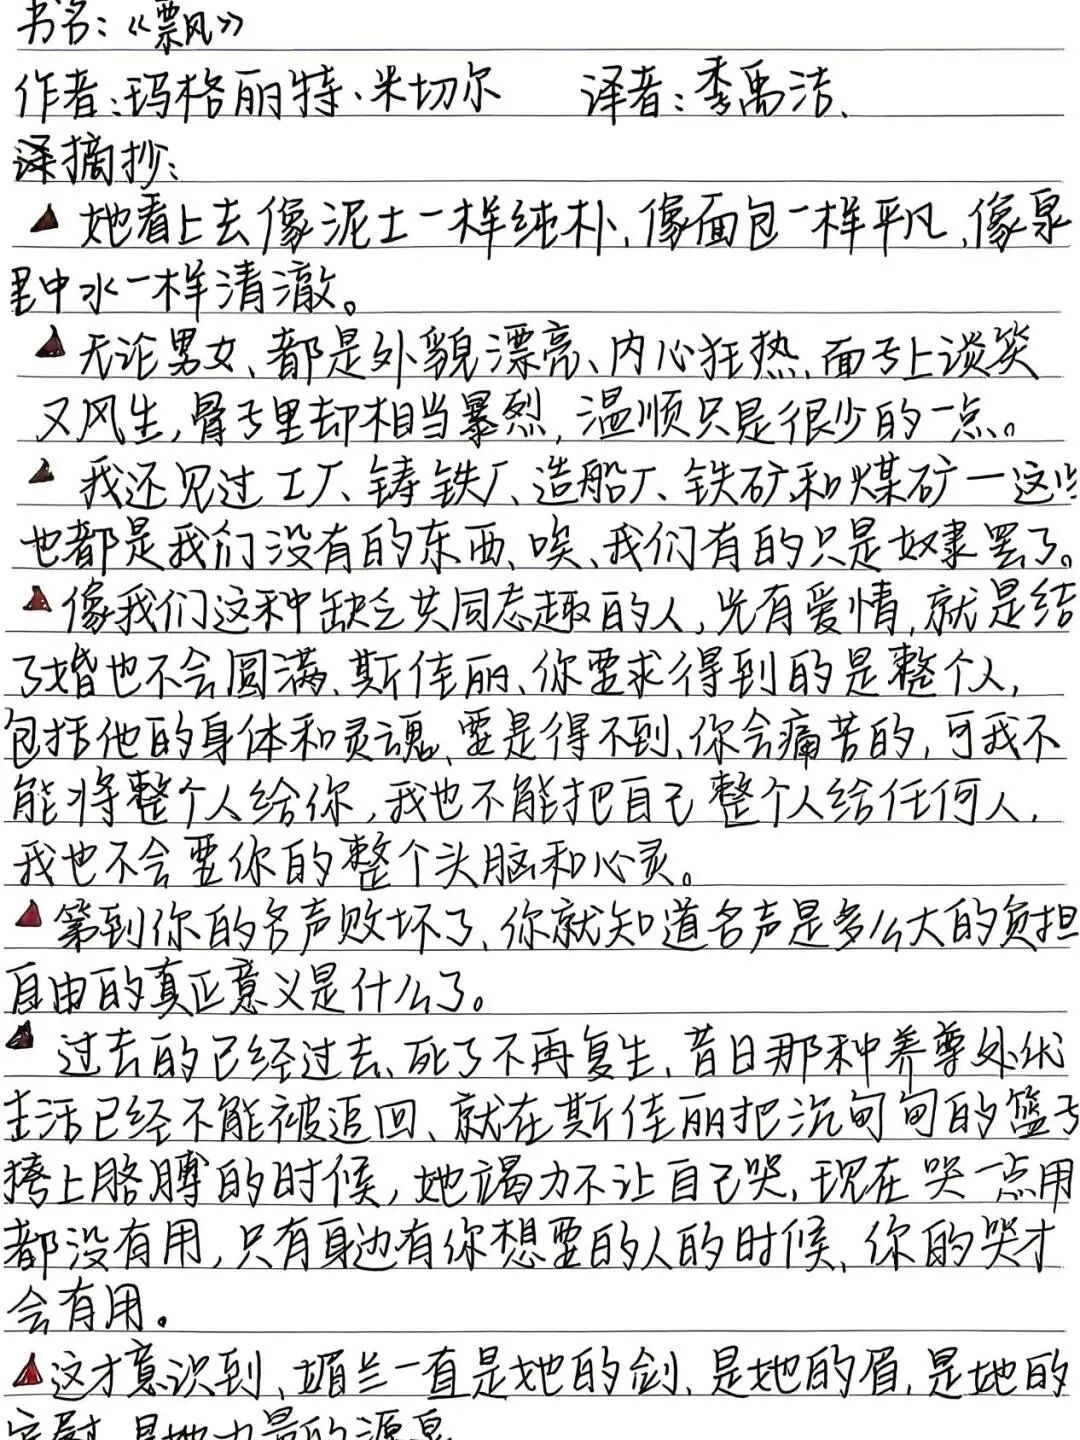 书名:《飘风》
作者:玛格丽特·米切尔 译者:李禹洁、
摘抄:
她看上去像泥土一样纯朴、像面包一样平凡、像泉
里中水一样清澈。
无论男女、都是外貌漂亮、内心狂热、面子上谈笑
又风生,骨子里却相当暴烈,温顺只是很少的一点。
我还见过工厂、铸铁厂、造船厂、铁矿和煤矿一这些
也都是我们没有的东西、唉、我们有的只是奴隶罢了。
像我们这种缺乏共同态趣的人,光有爱情,就是结
了婚也不会圆满、斯佳丽、你要求得到的是整个人,
包括他的身体和灵魂、要是得不到、你会痛苦的,可我不
能将整个人给你,我也不能把自己整个人给任何人,
我也不会要你的整个头脑和心灵。
等到你的名声败坏了、你就知道名声是多么大的负担
自由的真正意义是什么了。
过去的已经过去、死了不再复生、昔日那种养尊处优
生活已经不能被追回、就在斯佳丽把沉甸甸的篮子
挎上胳膊的时候,她竭力不让自己哭,现在哭一点用
都没有用,只有身边有你想要的人的时候、你的哭才
会有用。
这才意识到、媚兰一直是她的剑、是她的眉,是她的
是她力量的源泉